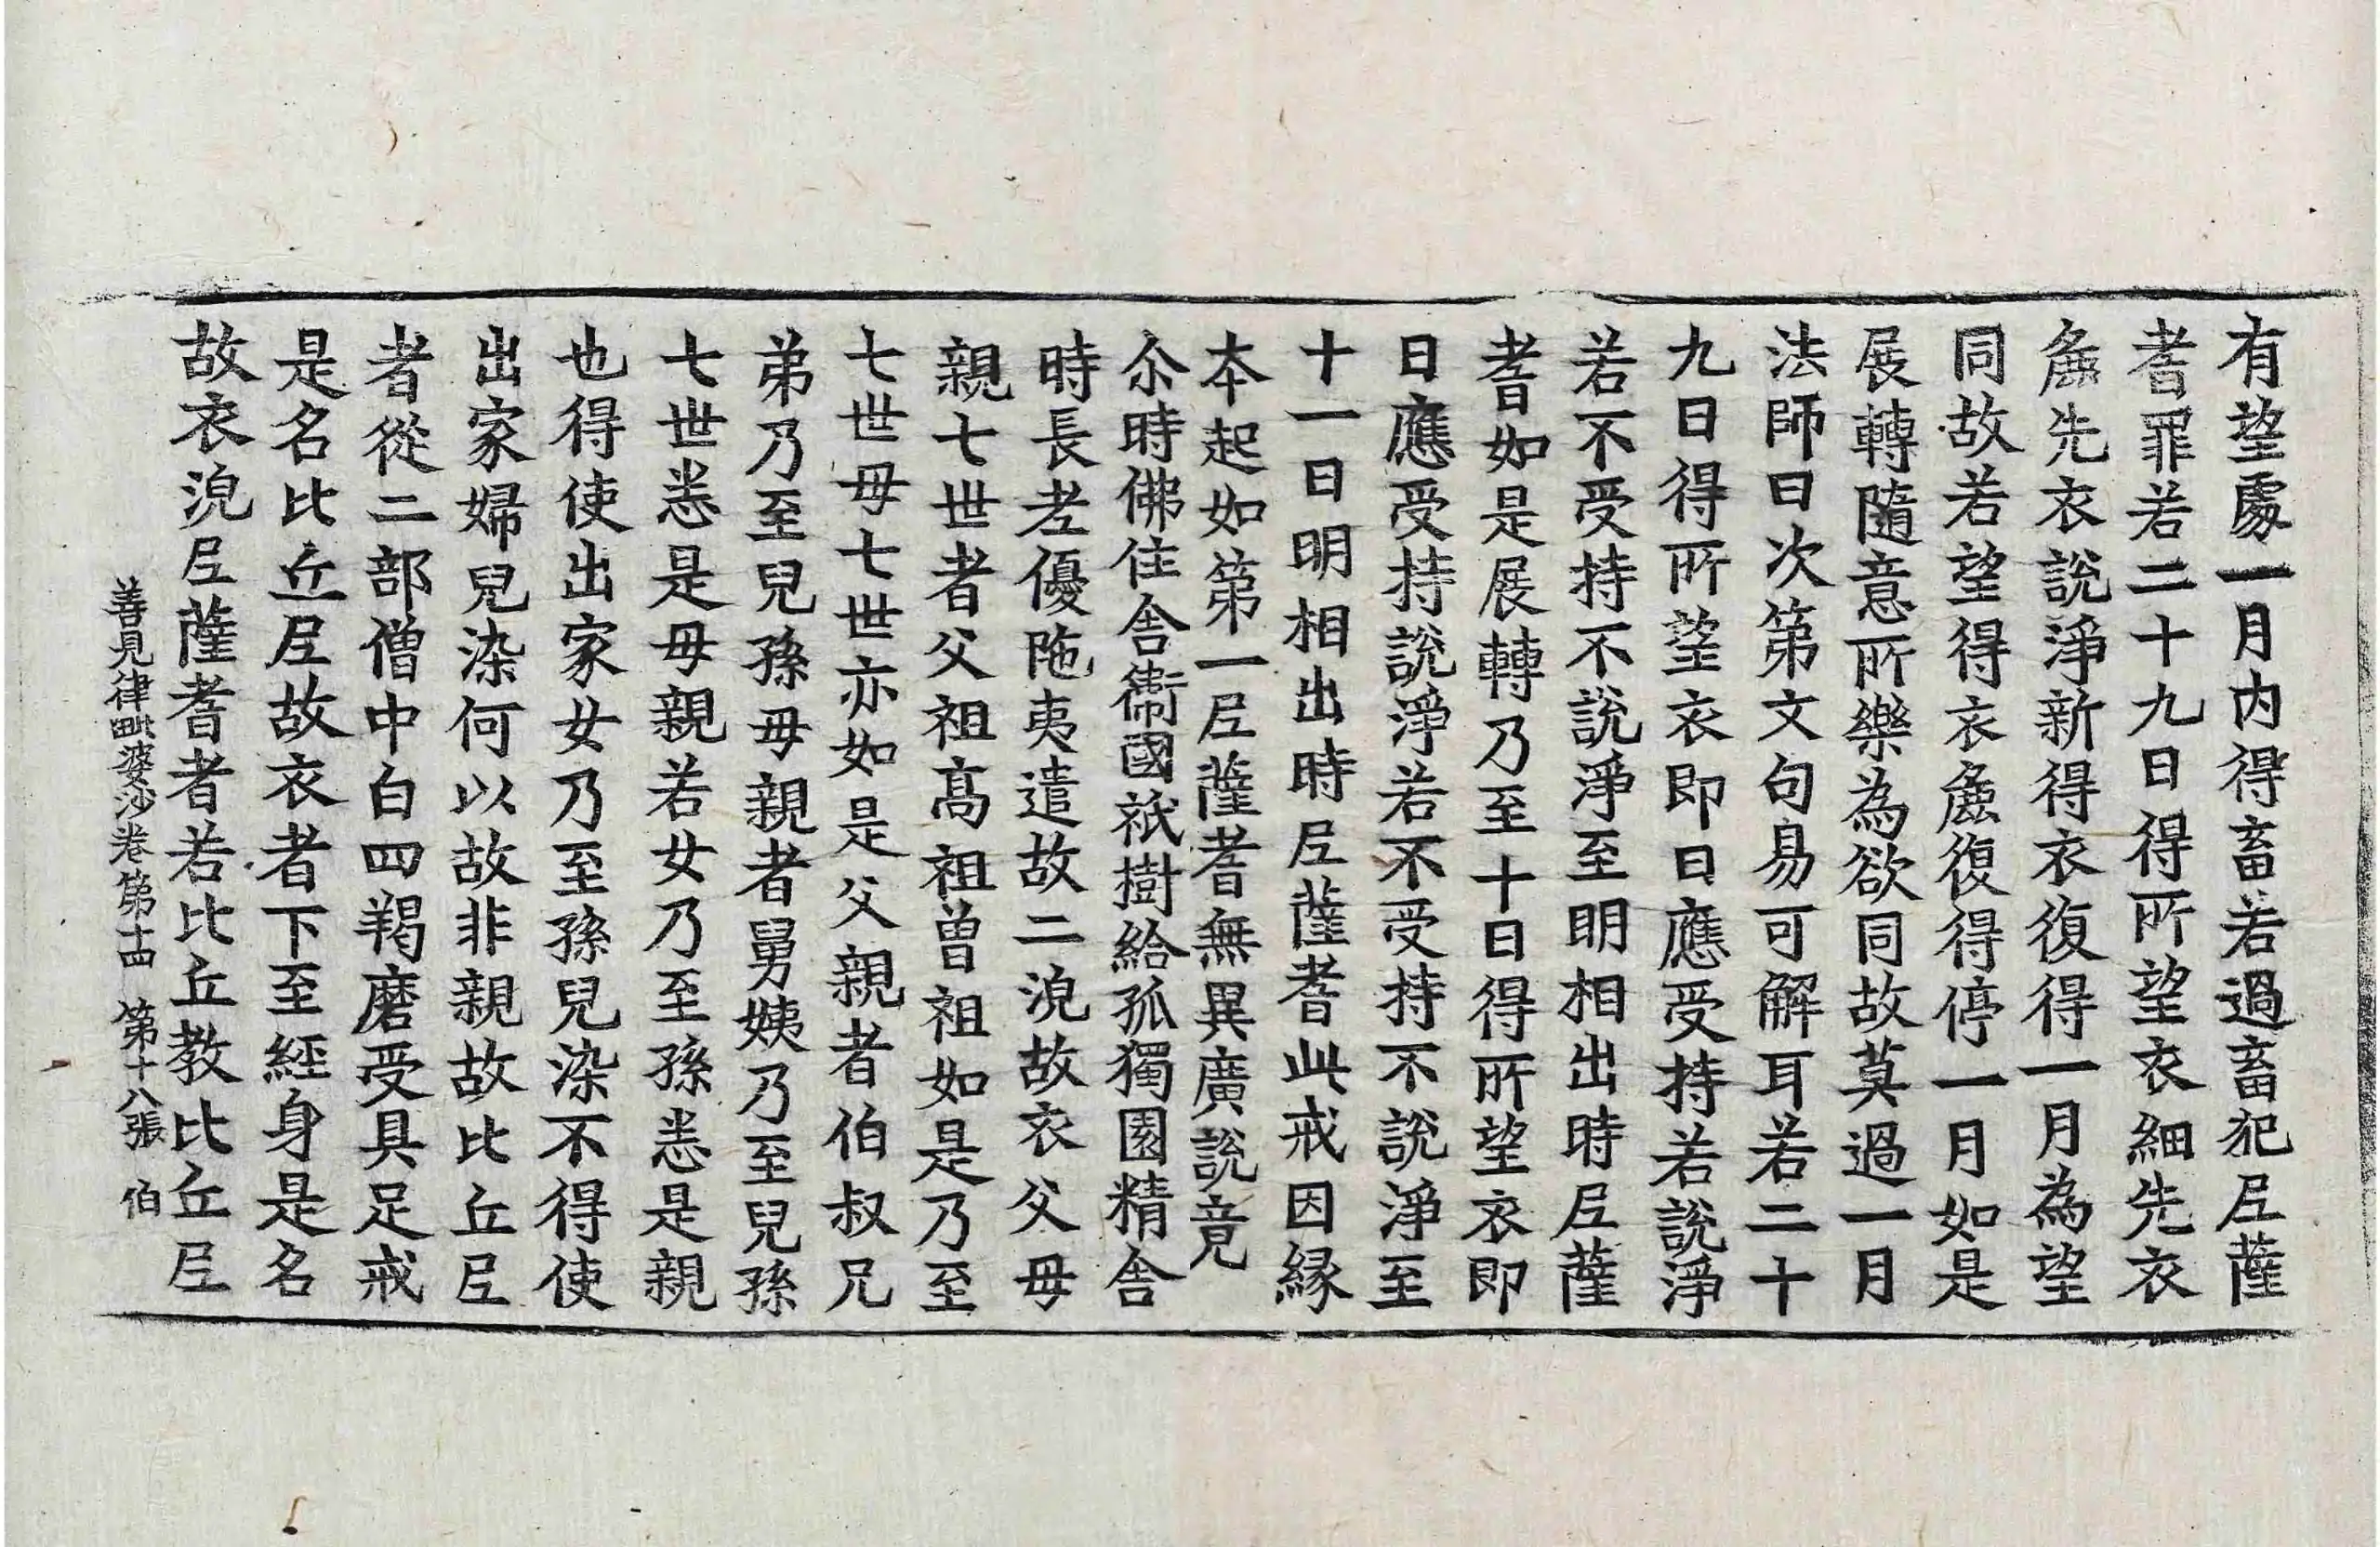 有望處一月内得畜若過畜犯𡰱薩
耆罪若二十九日得所望衣細先衣
麁先衣說淨新得衣復得一月為望
同故若望得衣麁復得停一月如是
展轉隨意所樂為欲同故莫過一月
法師曰次第文句易可解耳若二十
九日得所望衣即日應受持若說淨
若不受持不說淨至明相出時𡰱薩
耆如是展轉乃至十日得所望衣即
日應受持說淨若不受持不說淨至
十一日明相出時𡰱薩耆此戒因緣
本起如第一𡰱薩耆無異廣說竟
尒時佛住舍衞國祇樹給孤獨園精舍
時長老優陁夷遣故二浣故衣父母
親七世者父祖髙祖曽祖如是乃至
七世母七世亦如是父親者伯叔兄
弟乃至兒孫母親者舅姨乃至兒孫
七世悉是母親若女乃至孫悉是親
也得使出家女乃至孫兒染不得使
出家婦兒染何以故非親故比丘𡰱
者從二部僧中白四羯磨受具足戒
是名比丘𡰱故衣者下至經身是名
故衣浣𡰱薩耆者若比丘教比丘𡰱
善見律毗婆沙卷第十四 第十八張 伯